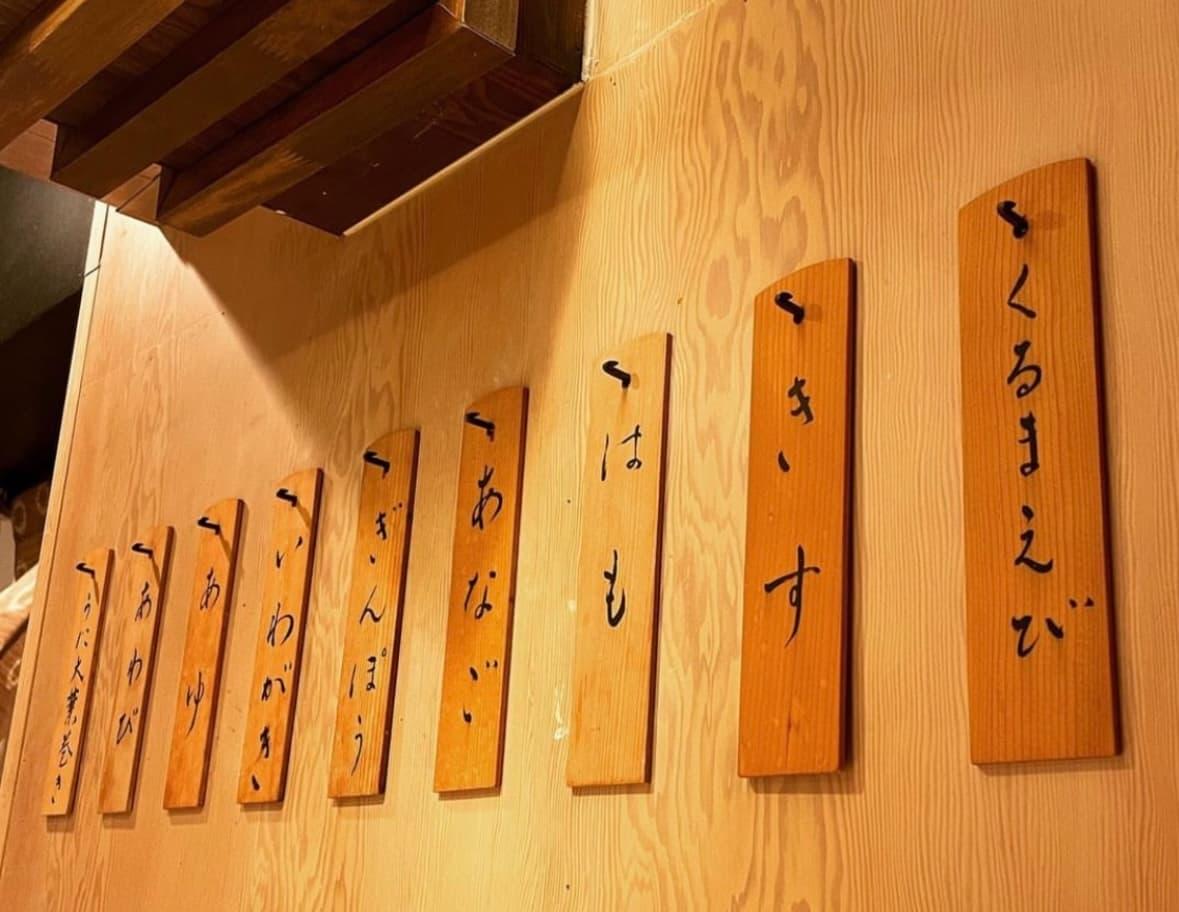 くるまえび
きす
はも
あなご
ぎんぽう
いわがき
あゆ
あわび
うに大葉巻き